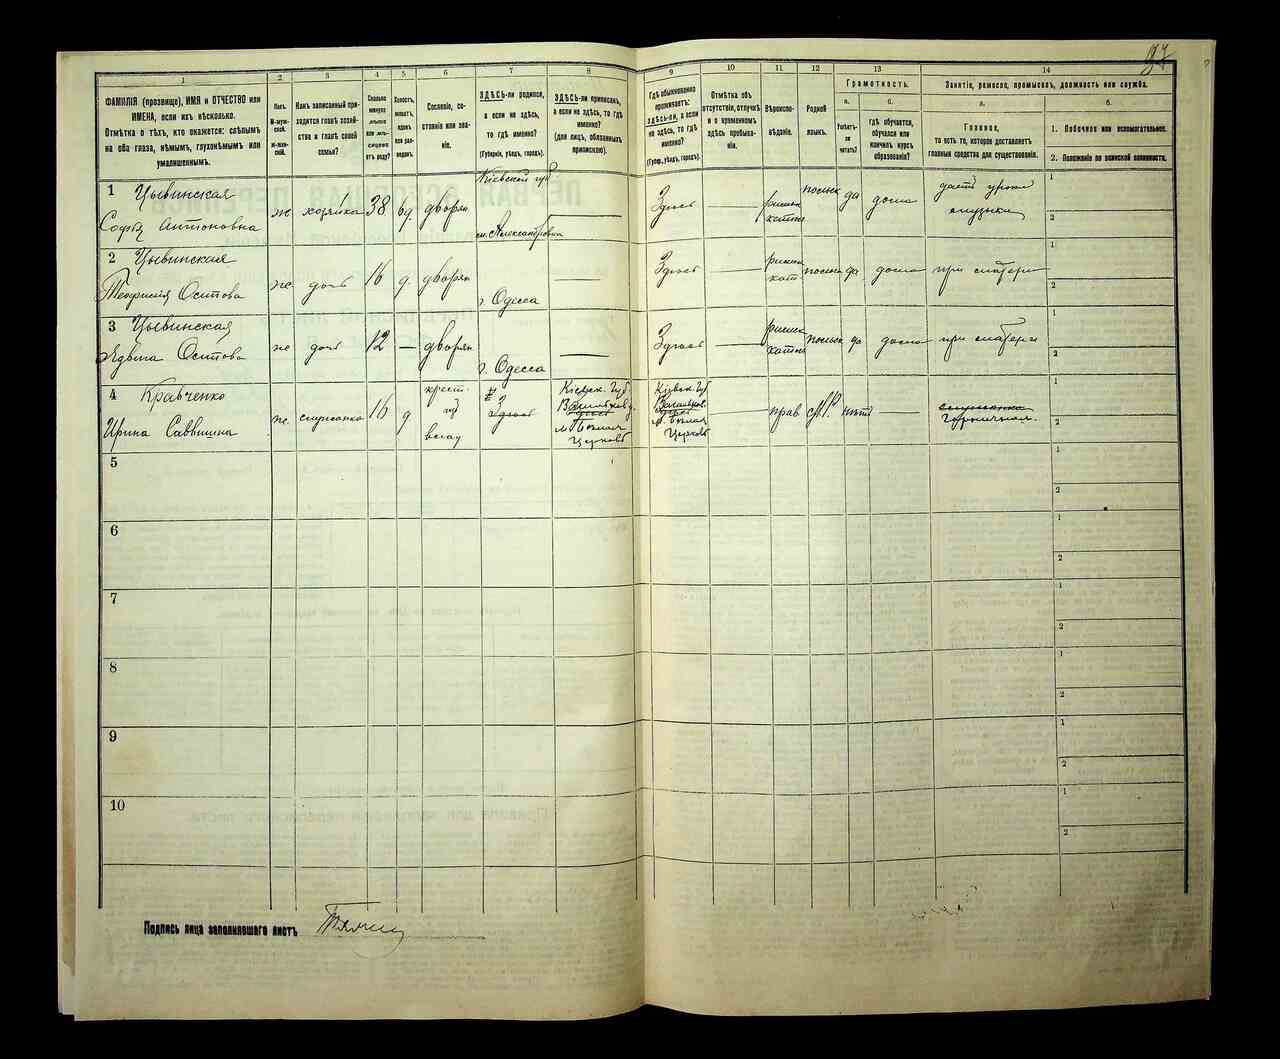 97
1 2 3 4 5 6 7 8 9 10 11 12 13 14
ФАМИЛІЯ (прозвище), ИМЯ и ОТЧЕСТВО или
ИМЕНА, если ихъ нѣсколько.
Отмѣтка о тѣхъ, кто окажется: слѣпымъ
на оба глаза, нѣмымъ, глухонѣмымъ или
умалишеннымъ.
Полъ.
М-муж-
ской.
Ж-жен-
скій.
Какъ записанный при-
ходится главѣ хозяй-
ства и главѣ своей
семьи?
Сколько
минуло
лѣтъ
или мѣ-
сяцевъ
отъ роду?
Холостъ,
женатъ,
вдовъ
или раз-
веденъ.
Сословіе, со-
стояніе или зва-
ніе.
ЗДѢСЬ-ли родился,
а если не здѣсь,
то гдѣ именно?
(Губернія, уѣздъ, городъ).
ЗДѢСЬ-ли приписанъ,
а если не здѣсь, то гдѣ
именно?
(для лицъ, обязанныхъ
припискою).
Гдѣ обыкновенно
проживаетъ:
ЗДѢСЬ-ли, а если
не здѣсь, то гдѣ
именно?
(Губер., уѣздъ, городъ).
Отмѣтка объ
отсутствіи, отлучкѣ
и о временномъ
здѣсь пребыва-
ніи.
Вѣроиспо-
вѣданіе.
Родной
языкъ.
Грамотность.
а.
Умѣетъ-
ли
читать?
б.
гдѣ обучается,
обучался или
кончилъ курсъ
образованія?
Занятіе, ремесло, промыселъ, должность или служба.
а.
Главное,
то есть то, которое доставляетъ
главныя средства для существованія.
б.
1. Побочное или вспомогательное.
2. Положеніе по воинской повинности.
1 Цывинская
Софья Антоновна
ж хозяйка 38 вд. дворян
Кіевской губ
м. Александровка
Здѣсь
римск
катол
польск да дома
даетъ уроки
музыки
1
2
2 Цывинская
Теофилія Осипова
ж дочь 16 д. дворян
г. Одесса
Здѣсь
римск
кат
польск да дома при матери
1
2
3 Цывинская
Ядвига Осипова
ж дочь 12 — дворян
г. Одесса
Здѣсь
римск
катол
польск да дома при матери
1
2
4 Кравченко
Ирина Саввишна
ж. служанка 16 д
крест-
Здѣсь
Кіевск. Губ.
Васильков у.
м. Бѣлая
Церковь
Кіевск. Губ
Васильков.
м. Бѣлая
Церковь
прав нѣтъ —
служанка
горничная.
1
2
5
1
2
6
1
2
7
1
2
8
1
2
9
1
2
10
1
2
Подпись лица заполнившаго листъ